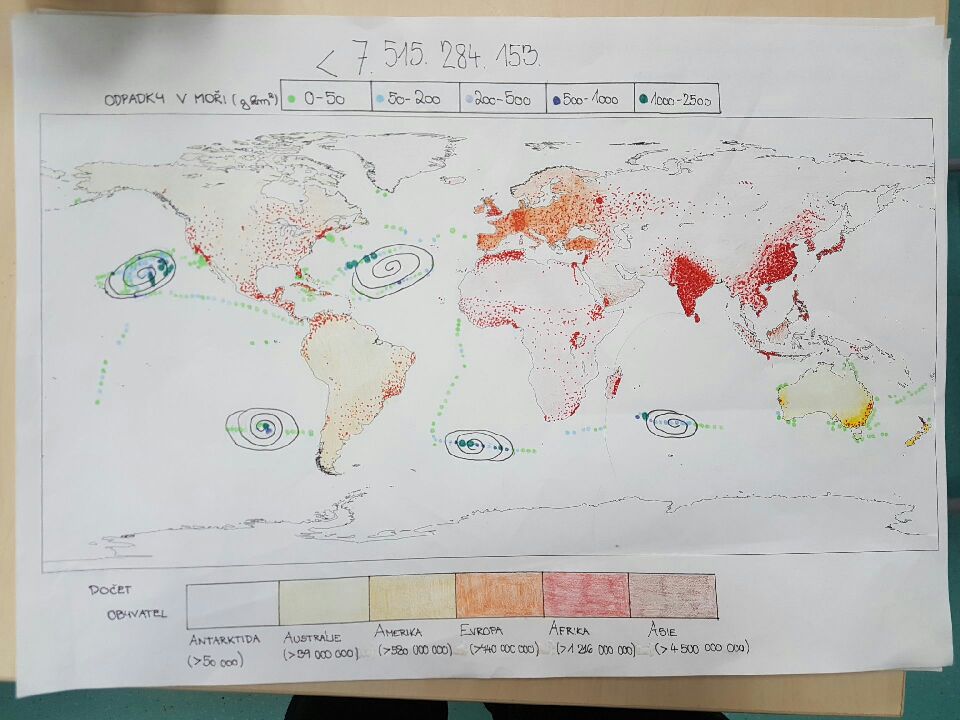 < 7. 515. 284. 153.
ODPADKY V MOŘI (g km²) 0-50 50-200 200-500 500-1000 1000-2500
POČET
OBYVATEL
ANTARKTIDA AUSTRÁLIE AMERIKA EVROPA AFRIKA ASIE
(>50 000) (>39 000 000) (>580 000 000) (>440 000 000) (>1 216 000 000) (>4 500 000 000)